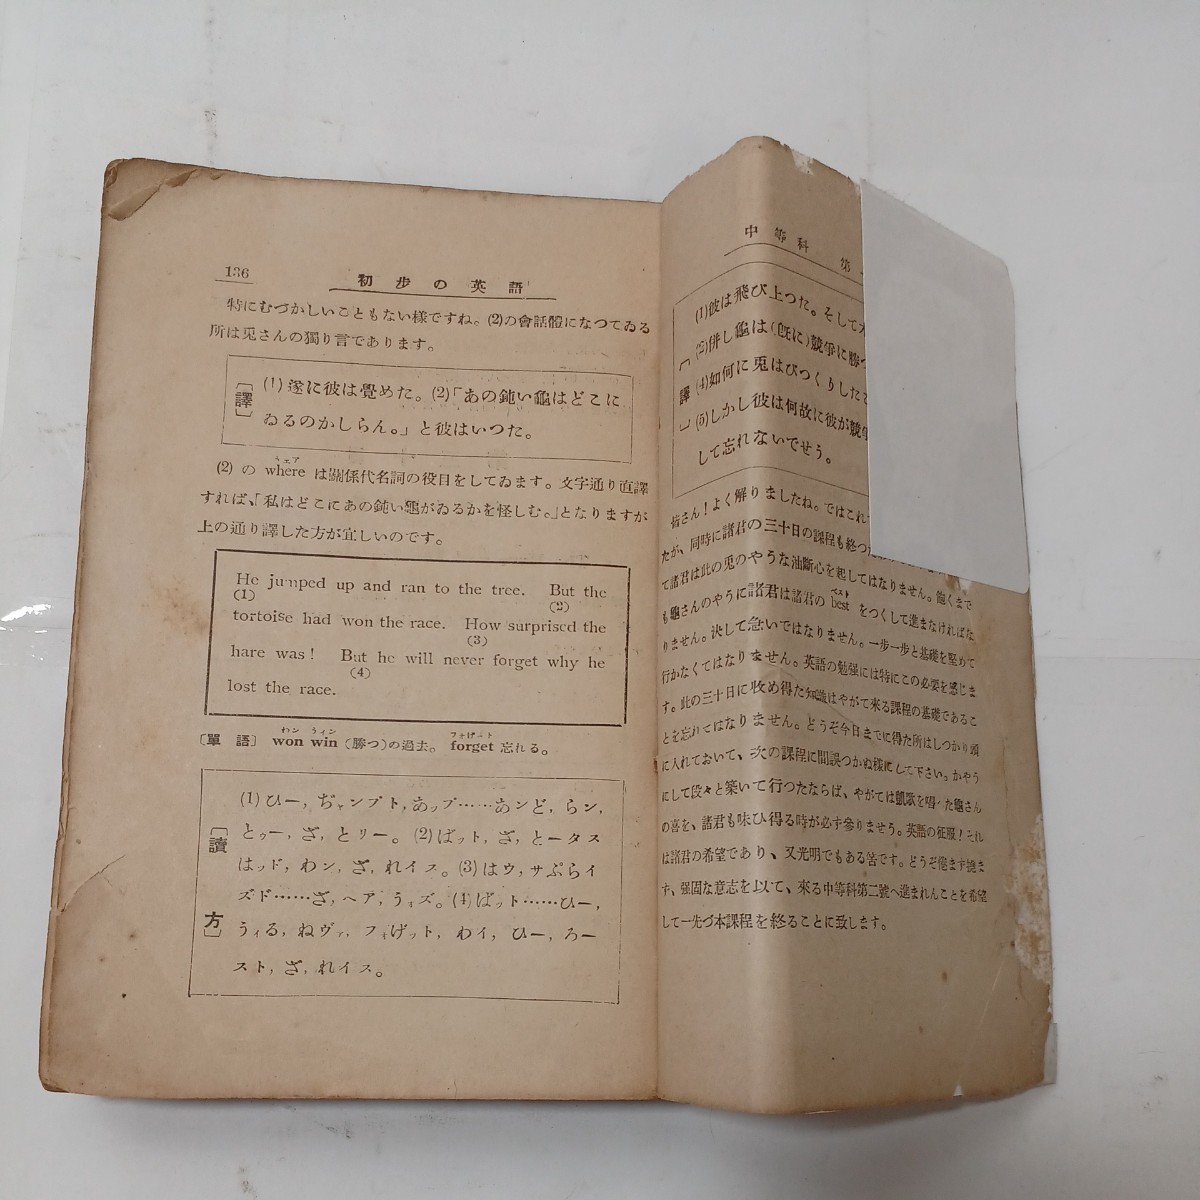 136
初步の英語
特にむづかしいこともない樣ですね。(2)の會話體になつてゐる
所は兎さんの獨り言であります。
〔譯〕
(1)遂に彼は覺めた。(2)「あの鈍い龜はどこに
ゐるのかしらん。」と彼はいつた。
キェア
(2) の where は關係代名詞の役目をしてゐます。文字通り直譯
すれば、「私はどこにあの鈍い龜がゐるかを怪しむ。」となりますが
上の通り譯した方が宜しいのです。
He jumped up and ran to the tree. But the
(1) (2)
tortoise had won the race. How surprised the
(3)
hare was! But he will never forget why he
(4)
lost the race.
わン うィン フォげート
〔單語〕 won win (勝つ)の過去。 forget 忘れる。
〔讀方〕
(1) ひー, ぢャンプト, あップ……あンど, らン,
とゥー, ざ, とリー。(2)ばット, ざ, とータス
はッド, わン, ざ, れイス。(3)はウ, サぷらイ
ズド……ざ, ヘア, うォズ。(4)ばット……ひー,
うィる, ねヴァ, フォげット, わイ, ひー, ろー
スト, ざ, れイス。
中等科 第
〔譯〕
(1)彼は飛び上つた。そして
(2)併し龜は(旣に)競爭に勝つ
(4)如何に兎はびつくりした
(5)しかし彼は何故に彼が競爭
して忘れないでせう。
皆さん!よく解りましたね。ではこれ
たが、同時に諸君の三十日の課程も終つ
て諸君は此の兎のやうな油斷心を起してはなりません。飽くまで
ベスト
も龜さんのやうに諸君は諸君の best をつくして進まなければな
りません。決して急いではなりません。一步一步と基礎を堅めて
行かなくてはなりません。英語の勉强には特にこの必要を感じま
す。此の三十日に收め得た知識はやがて來る課程の基礎であるこ
とを忘れてはなりません。どうぞ今日までに得た所はしつかり頭
に入れておいて、次の課程に間誤つかぬ樣にして下さい。かやう
にして段々と築いて行つたならば、やがては凱歌を唱へた龜さん
の喜を、諸君も味ひ得る時が必ず參りませう。英語の征服!それ
は諸君の希望であり、又光明でもある筈です。どうぞ倦まず撓ま
ず、强固な意志を以て、來る中等科第二號へ進まれんことを希望
して一先づ本課程を終ることに致します。